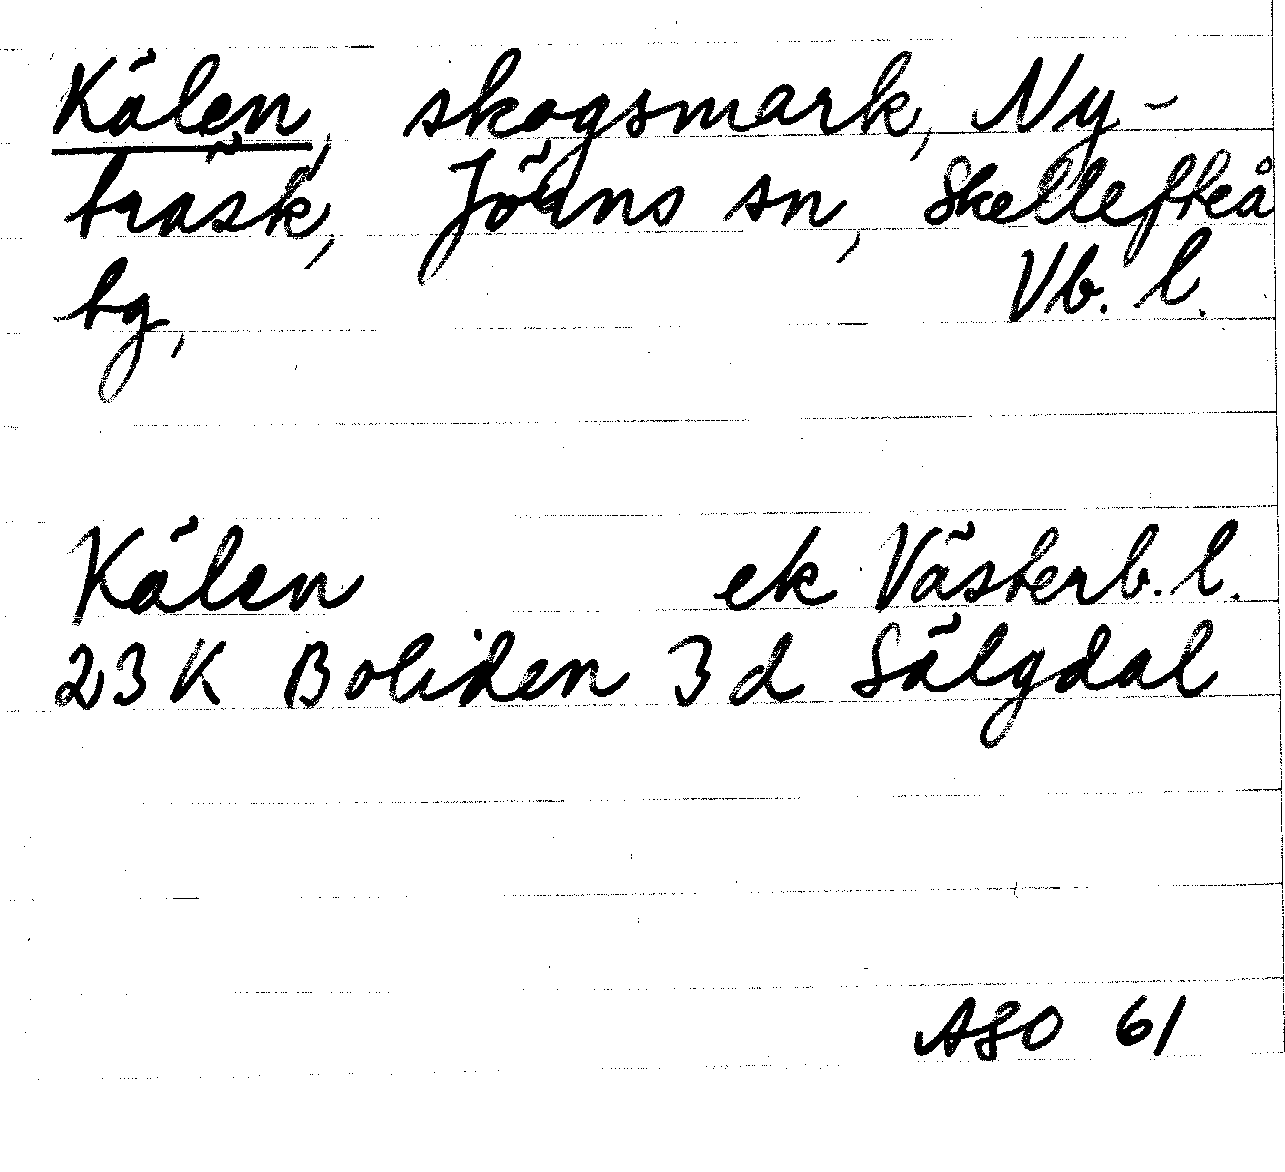 Kälen, skogsmark, Ny-
träsk, Jörns sn, Skellefteå
tg, Vb. l.
Kälen ek Västerb. l.
23 K Boliden 3 d Sälgdal
ASO 61